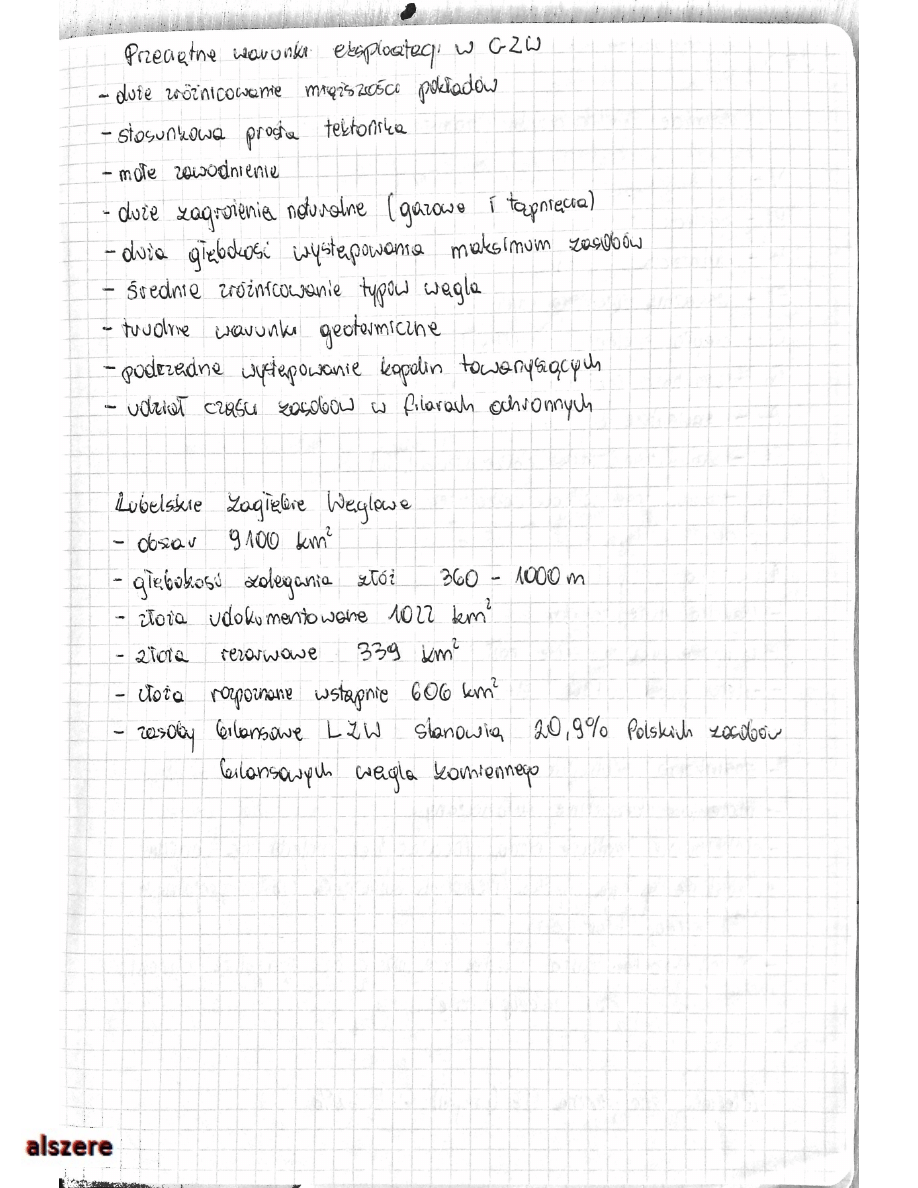 Przeciętne warunki eksploatacji w GZW
- duże zróżnicowanie miąższości pokładów
- stosunkowa prosta tektonika
- małe zawodnienie
- duże zagrożenia naturalne (gazowe i tąpnięcia)
- duża głębokość występowania maksimum zasobów
- średnie zróżnicowanie typów węgla
- trudne warunki geotermiczne
- podrzędne występowanie kopalin towarzyszących
- udział części zasobów w filarach ochronnych
Lubelskie Zagłębie Węglowe
- obszar 9100 km²
- głębokość zalegania złóż 360 - 1000 m
- złoża udokumentowane 1022 km²
- złoża rezerwowe 339 km²
- złoża rozpoznane wstępnie 606 km²
- zasoby bilansowe LZW stanowią 20,9% Polskich zasobów
bilansowych węgla kamiennego
alszere